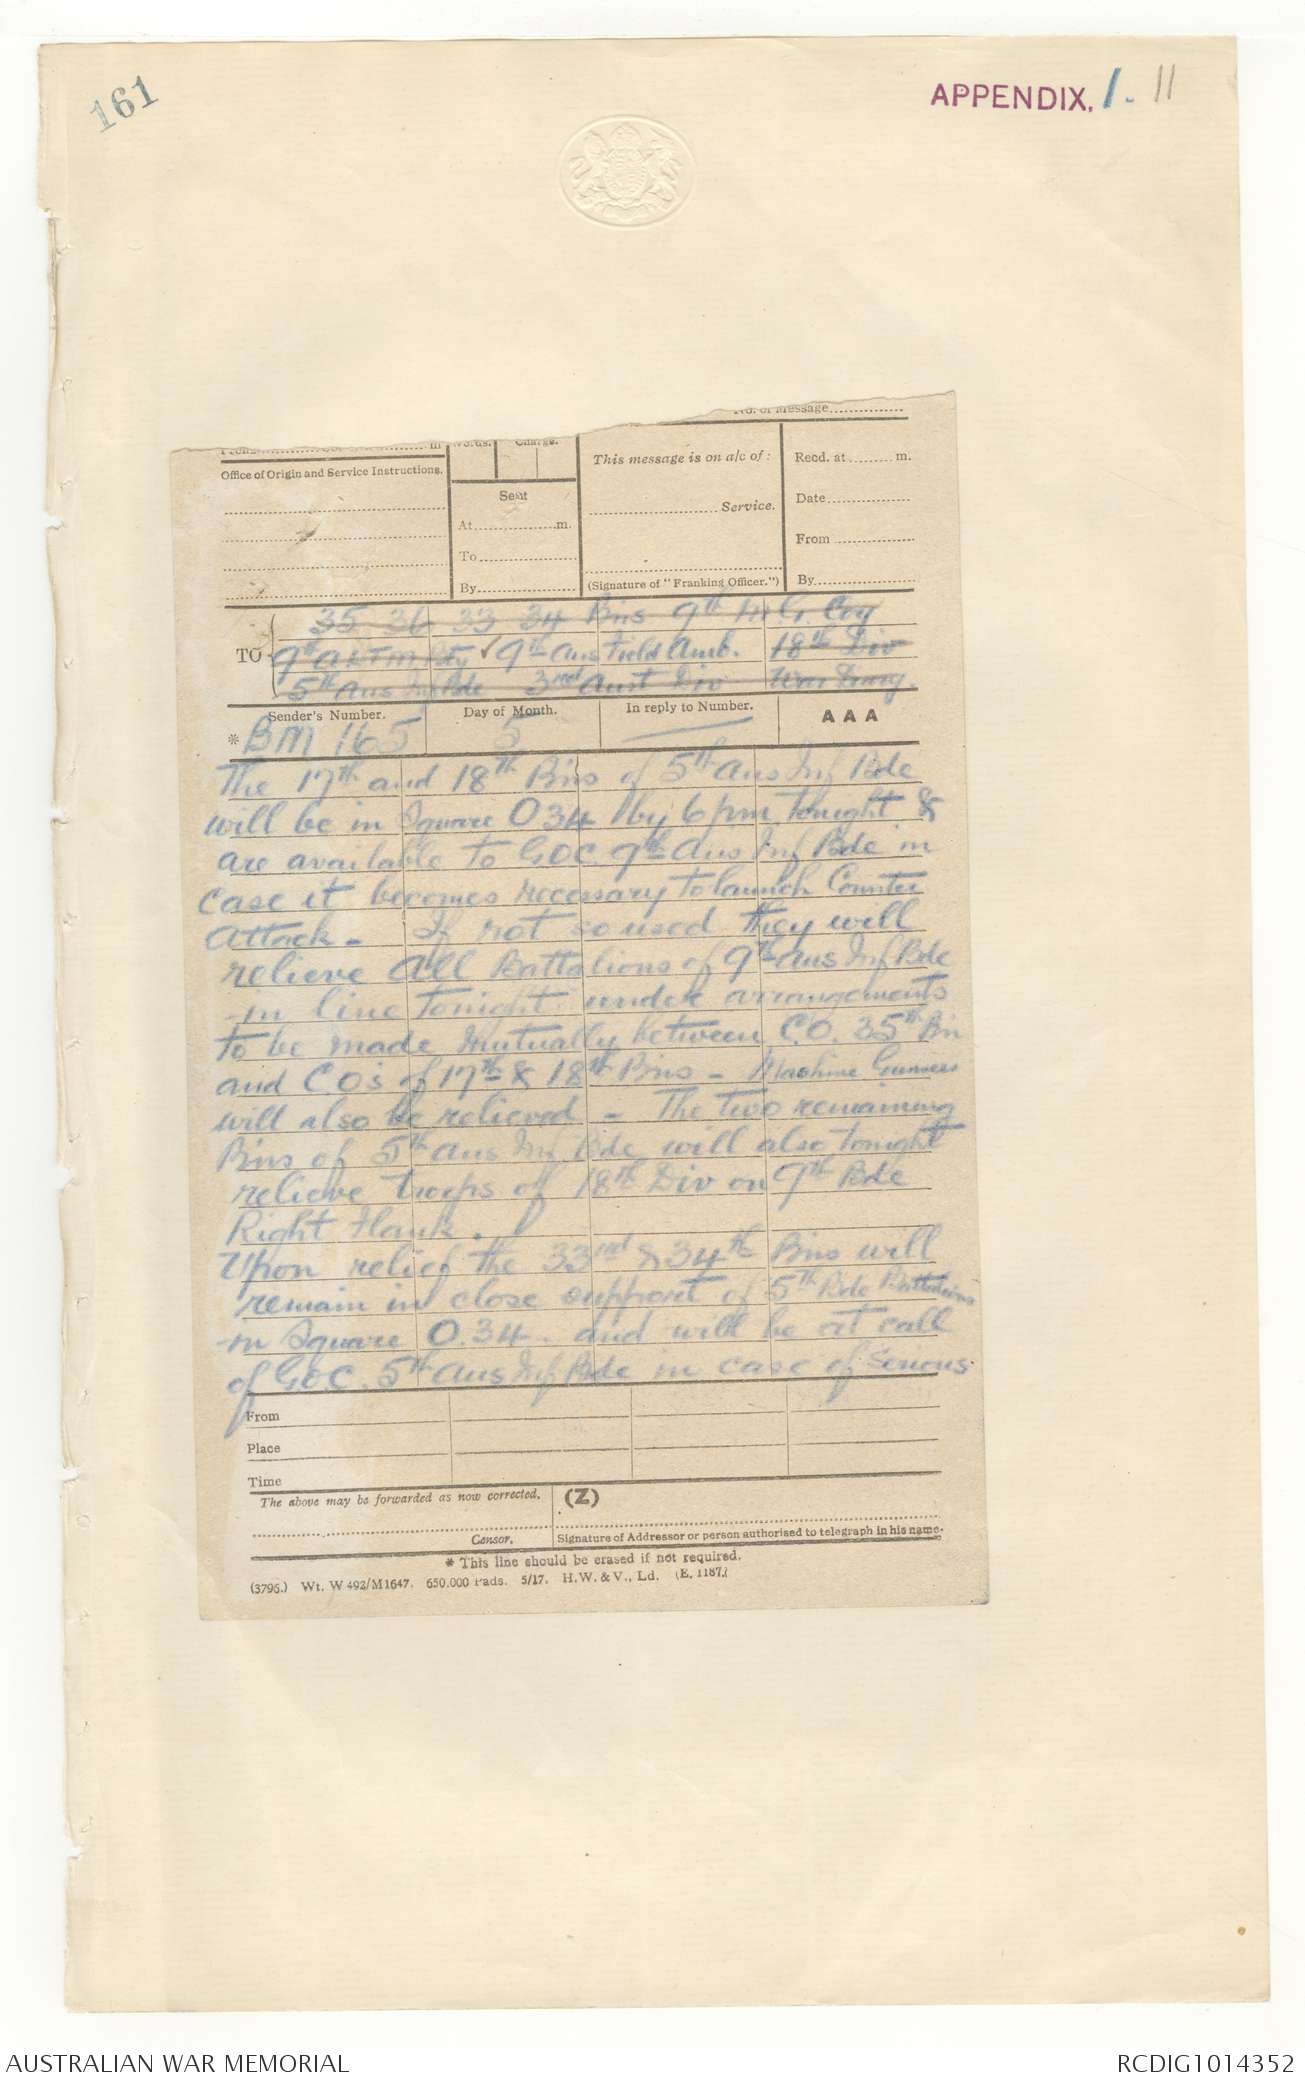 161
APPENDIX. 1. 11
No. of Message
m Words. Charge.
Office of Origin and Service Instructions.
Sent
At m.
To
By
This message is on a/c of :
Service.
(Signature of "Franking Officer.")
Recd. at m.
Date
From
By
TO
35 36 33 34 Bns 9th M.G. Coy
9th A L T M Bty ✓ 9th Aus Field Amb. 18th Div
5th Aus Inf Bde 3rd Aust Div War Diary.
Sender's Number. Day of Month. In reply to Number. AAA
* BM 165 5
The 17th and 18th Bns of 5th Aus Inf Bde
will be in Square O34 by 6 pm tonight &
are available to GOC 9th Aus Inf Bde in
case it becomes necessary to launch Counter
Attack - If not so used they will
relieve all Battalions of 9th Aus Inf Bde
in line tonight under arrangements
to be made mutually between C.O. 35th Bn
and C.O's of 17th & 18th Bns - Machine Gunners
will also be relieved - The two remaining
Bns of 5th Aus Inf Bde will also tonight
relieve troops of 18th Div on 9th Bde
Right Flank.
Upon relief the 33rd & 34th Bns will
remain in close support of 5th Bde Battalions
in Square O.34. and will be at call
of G.O.C. 5th Aus Inf Bde in case of serious
From
Place
Time
The above may be forwarded as now corrected. (Z)
Censor. Signature of Addressor or person authorised to telegraph in his name.
* This line should be erased if not required.
(3796.) Wt. W 492/M1647. 650,000 Pads. 5/17. H.W.&V., Ld. (E. 1187.)
AUSTRALIAN WAR MEMORIAL RCDIG1014352